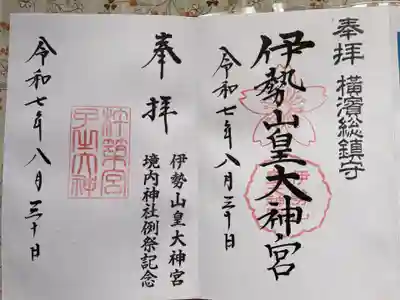 奉拝 横濱総鎮守
伊勢山皇大神宮
令和七年八月三十日
奉拝
伊勢山皇大神宮
境内神社例祭記念
杵築宮
子之大神
令和七年八月三十日